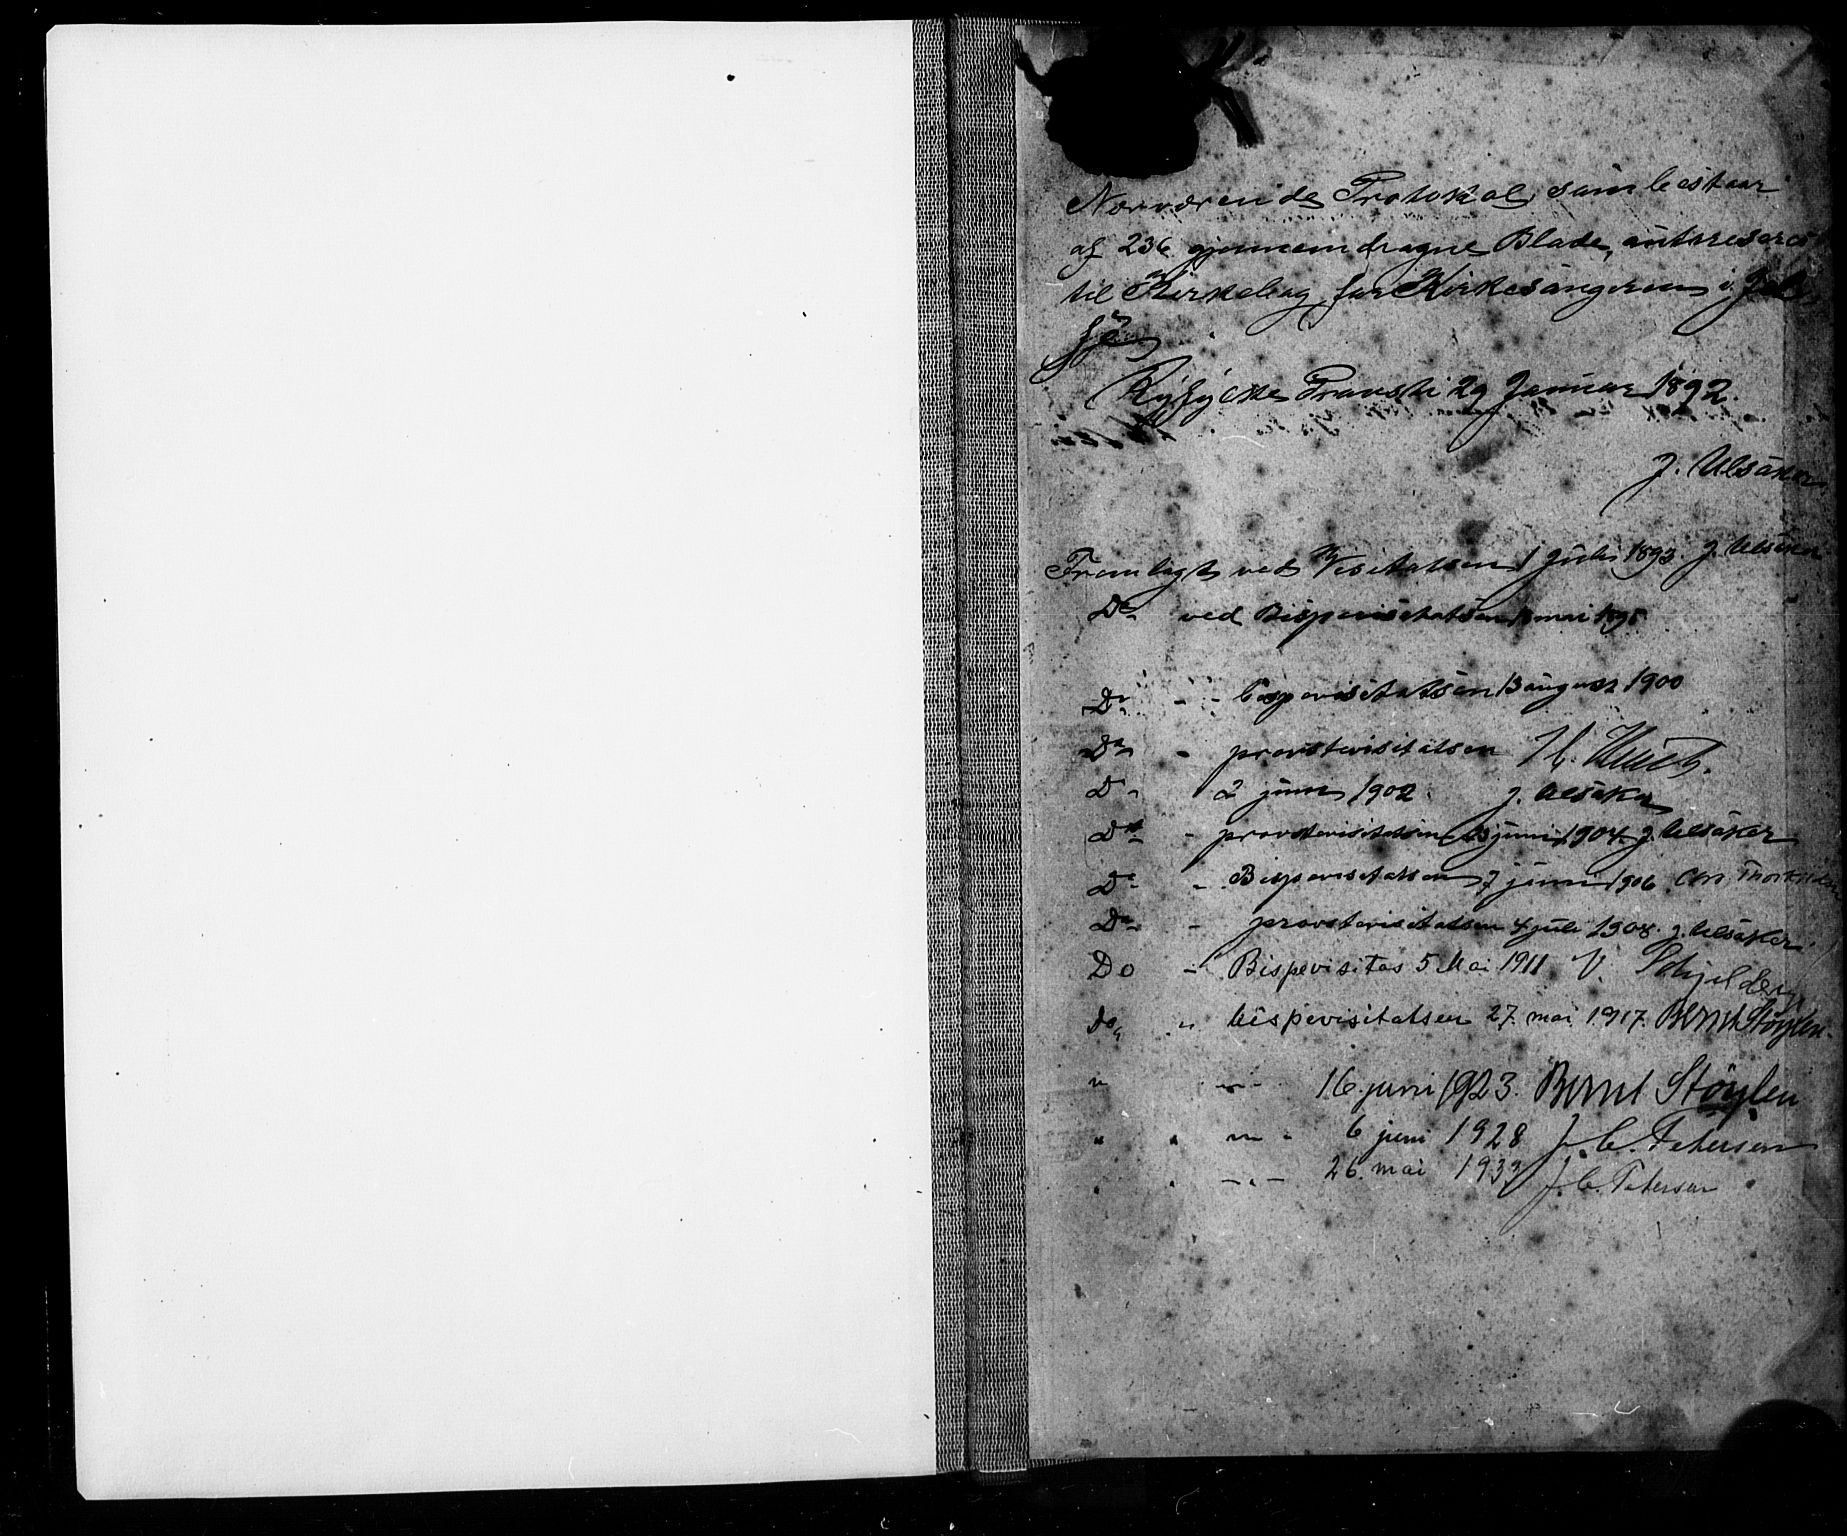 Nærværende Protokol, som bestaar
af 236 gjennemdragne Blade, autoriseres
til Kirkebog for Kirkesangeren i Jel-
sø.
Ryfylke Provsti 29 Januar 1892.
J. Ulsåker
Fremlagt ved Visitatsen 1 Juli 1893. J. Ulsåker
Do ved Bispevisitatsen mai 1895
Do - - bispevisitatsen 13 august 1900
Do - provstevisitatsen H.
Do - 2 juni 1902. J. Ulsåker
Do - provstevisitatsen juni 1904. J. Ulsåker
Do - Bispevisitatsen 7 juni 1906.
Do - provstevisitatsen 4 juli 1908. J. Ulsåker
Do - Bispevisitas 5 Mai 1911 V.
do " bispevisitatsen 27. mai 1917. Bernt Støylen.
" - " - 16. juni 1923. Bernt Støylen
" " - " - 6 juni 1928 J. C. Petersen
" " - " - 26. mai 1933 J. C. Petersen